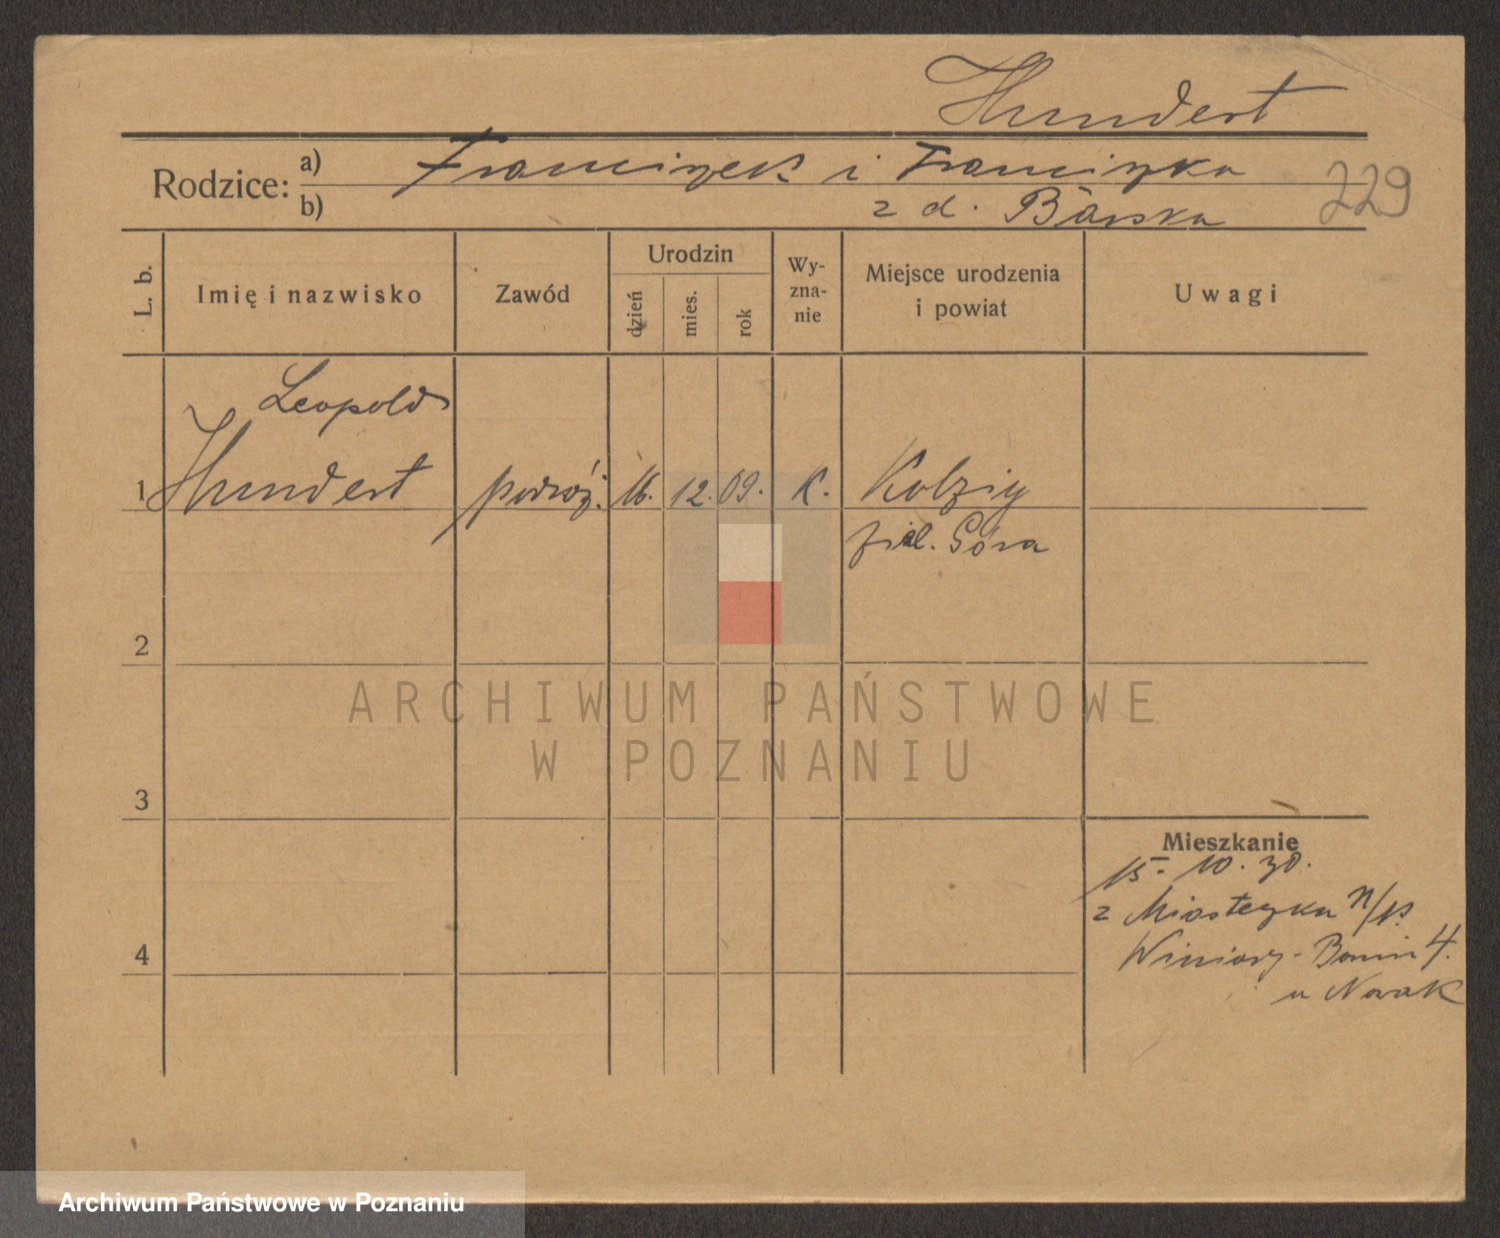 Hundert
Rodzice: a) Franciszek i Franciszka
b) z d. Barska
229
L. b.
Imię i nazwisko
Zawód
Urodzin
dzień
mies.
rok
Wy-
zna-
nie
Miejsce urodzenia
i powiat
Uwagi
Leopold
1 Hundert podróż. 16. 12. 09. K. Kolzig
ziel. Góra
2
3
4
Mieszkanie
15. 10. 30.
z Miasteczka n/
Winiary - Bonin 4.
u Nowak
ARCHIWUM PAŃSTWOWE
W POZNANIU
Archiwum Państwowe w Poznaniu